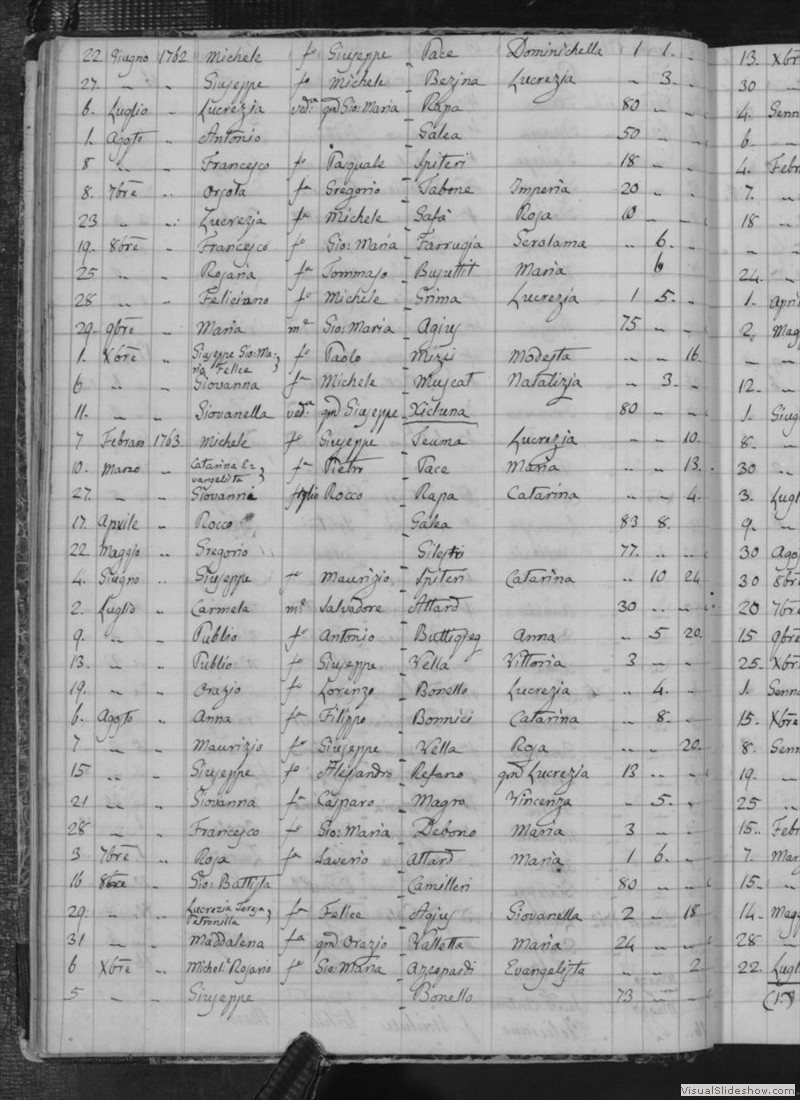 22 Giugno 1762 Michele fo Giuseppe Pace Dominichella 1 1. „
27. „ „ Giuseppe fo Michele Bezina Lucrezia „ 3. „
6. Luglio „ Lucrezia ved:a qm Gio: Maria Rapa 80 „ „
1. Agosto „ Antonio Galea 50 „ „
8 „ „ Francesco fo Pasquale Spiteri 18 „ „
8. 7bre „ Orsola fa Gregorio Tabone Imperia 20 „ „
23 „ „ Lucrezia fa Michele Safà Rosa 10 „ „
19. 8bre „ Francesco fo Gio: Maria Farrugia Gerolama „ 6. „
25 „ „ Rosaria fa Tommaso Busuttil Maria 6
28 „ „ Feliciano fo Michele Grima Lucrezia 1 5. „
29. 9bre „ Maria me Gio: Maria Agius 75 „ „
1. Xbre „ Giuseppe Gio: Ma:
ria Felice } fo Paolo Mizzi Modesta „ „ 16.
6 „ „ Giovanna fa Michele Muscat Natalizia „ 3. „
11. „ „ Giovanella ved:a qm Giuseppe Xicluna 80 „ „
7 Febraro 1763 Michele fo Giuseppe Teuma Lucrezia „ „ 10.
10. Marzo „ Catarina E=
vangelista } fa Pietro Pace Maria „ „ 13.
27. „ „ Giovanni figlio Rocco Rapa Catarina „ „ 4.
17. Aprile „ Rocco Galea 83 8.
22. Maggio „ Gregorio 77. „ „
4. Giugno „ Giuseppe fo Maurizio Spiteri Catarina „ 10 24
2. Luglio „ Carmela me Salvadore Attard 30 „ „
9. „ „ Publio fo Antonio Buttigieg Anna „ 5 20.
13. „ „ Publio fo Giuseppe Vella Vittoria 3 „ „
19. „ „ Orazio fo Lorenzo Bonello Lucrezia „ 4. „
6. Agosto „ Anna fa Filippo Bonnici Catarina „ 8. „
7 „ „ Maurizio fo Giuseppe Vella Rosa „ „ 20.
15 „ „ Giuseppe fo Alessandro Refano qm Lucrezia 13 „ „
21 „ „ Giovanna fa Casparo Magro Vincenza „ 5. „
28 „ „ Francesco fo Gio: Maria Debono Maria 3 „ „
3 7bre „ Rosa fa Saverio Attard Maria 1 6. „
16 8bre „ Gio: Battista Camilleri 80 „ „
29. „ „ Lucrezia Teresa
Petronilla } fa Felice Agius Giovanella 2 „ 18
31 „ „ Maddalena fa qm Orazio Valletta Maria 24 „ „
6 Xbre „ Michel: Rosario fo Gio: Maria Azzopardi Evangelista „ „ 2
5 „ „ Giuseppe Bonello 73 „ „
13. Xbre
30 „
4. Genn
6 „
4. Febr
7. „
18 „
24. „
1. April
2. Magg
12. „
1. Giug
8. „
30 „
3. Lugl
9. „
30 Ago
30 8bre
20 7bre
15 9bre
25. Xbr
1. Genn
15. Xbre
8. Genn
19. „
25 „
15. Febr
7. Mar
15. „
14. Magg
28 „
22. Lugl
VisualSlideshow.com